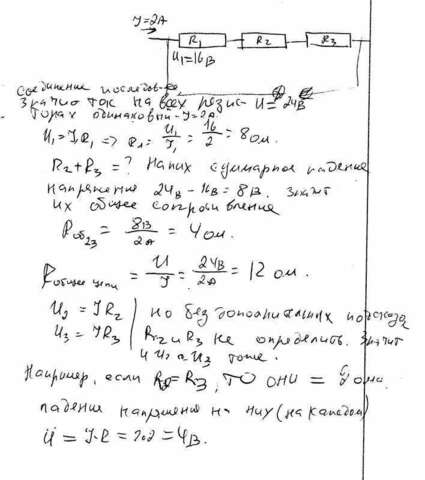 J=2A
R₁ R₂ R₃
U₁=16В
соединение последов-ое
U=24В
значит ток на всех резис-
торах одинаковый-J=2A
U₁=J₁R₁ => R₁= U₁/J₁ = 16/2 = 8 ом.
R₂+R₃=? На них суммарное падение
напряжение 24В-16В=8В. Значит
их общее сопротивление
Rоб₂₃ = 8В/2А = 4 ом.
Rобщее цепи = U/J = 24В/2А = 12 ом.
U₂ = JR₂ | но без дополнительных
U₃ = JR₃ | R₂ и R₃ не определить. Значит
и U₂ и U₃ тоже.
Например, если R₂=R₃, то они = 2 ома.
падение напряжения на них (на каждом)
U = J·R = 2·2 = 4В.